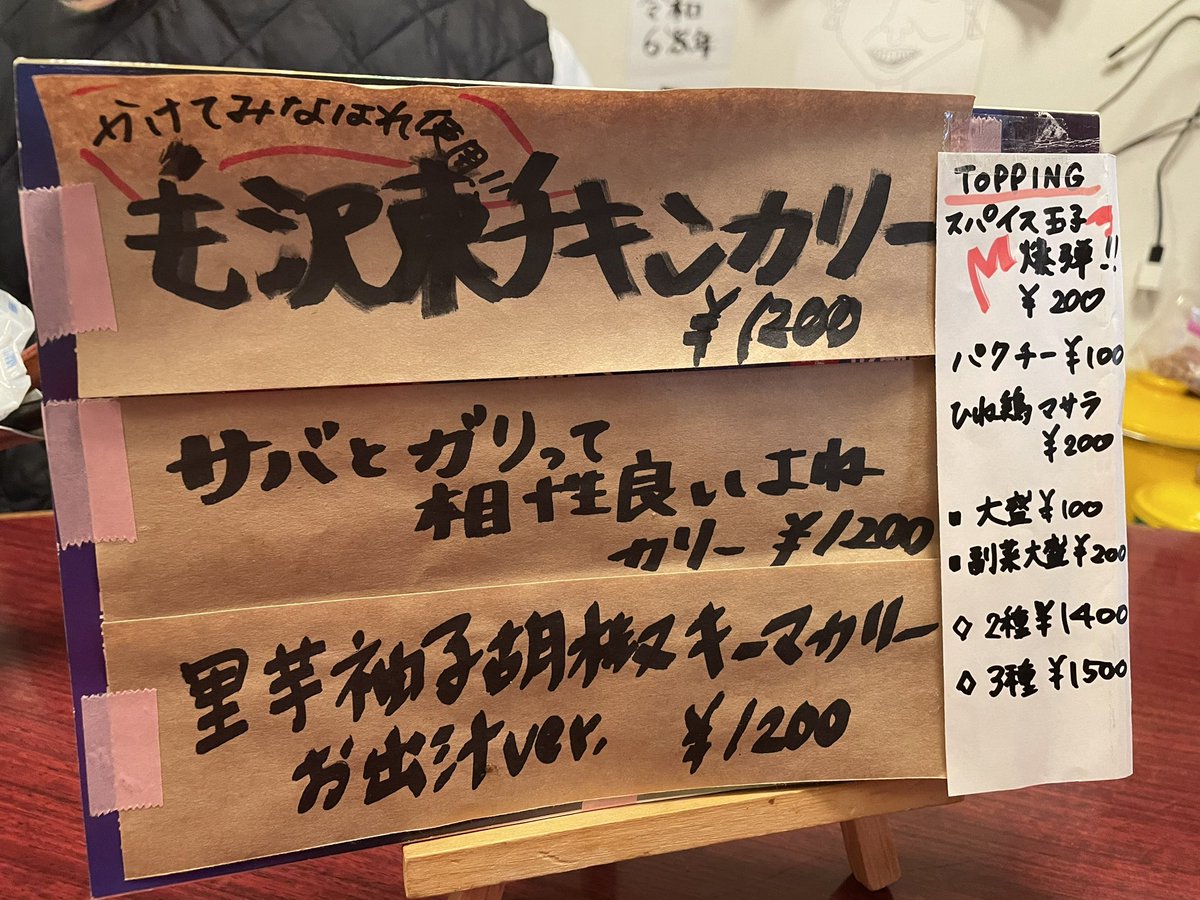 令和
6.25年
かけてみなはれ使用
毛沢東チキンカリー
¥1200
サバとガリって
相性良いよね
カリー ¥1200
里芋柚子胡椒キーマカリー
お出汁ver. ¥1200
TOPPING
スパイス玉子
爆弾!!
¥200
パクチー¥100
ひね鶏マサラ
¥200
▪大盛¥100
▪副菜大盛¥200
◇2種¥1400
◇3種¥1500